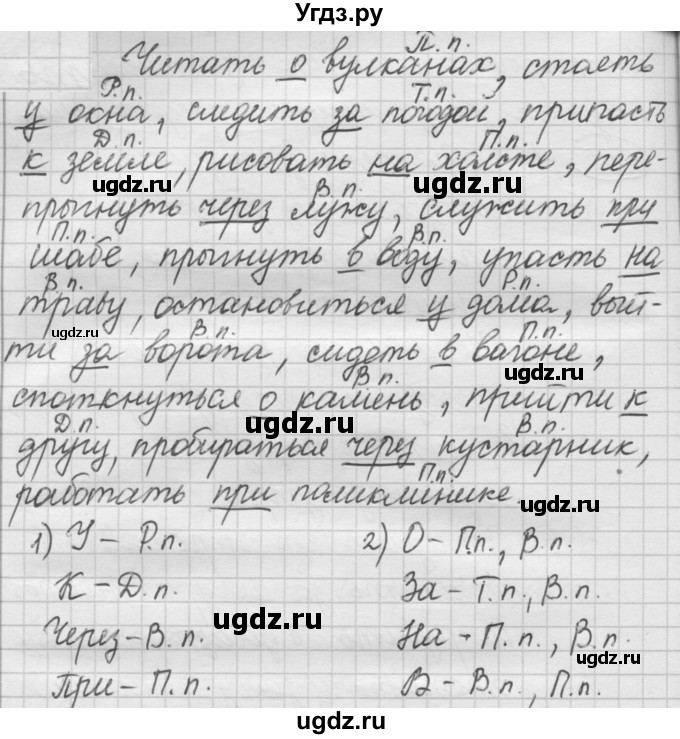 Угдз.ру
П. п.
Читать о вулканах, стоять
Р. п. Т. п.
у окна, следить за погодой, припасть
Д. п. П. п.
к земле, рисовать на холсте, пере-
В. п.
прыгнуть через лужу, служить при
П. п. В. п.
штабе, прыгнуть в воду, упасть на
В. п. Р. п.
траву, остановиться у дома, вый-
В. п. П. п.
ти за ворота, сидеть в вагоне,
В п.
споткнуться о камень, прийти к
Д. п. В. п.
другу, пробираться через кустарник,
П. п.
работать при поликлинике.
1) У – Р. п. 2) О – П.п., В. п.
К – Д. п. За – Т. п., В. п.
Через – В. п. На – П. п., В. п.
При – П. п. В – В. п., П. п.
ugdz.ru
ugdz.ru
ugdz.ru
ugdz.ru
ugdz.ru
ugdz.ru
ugdz.ru
ugdz.ru
ugdz.ru